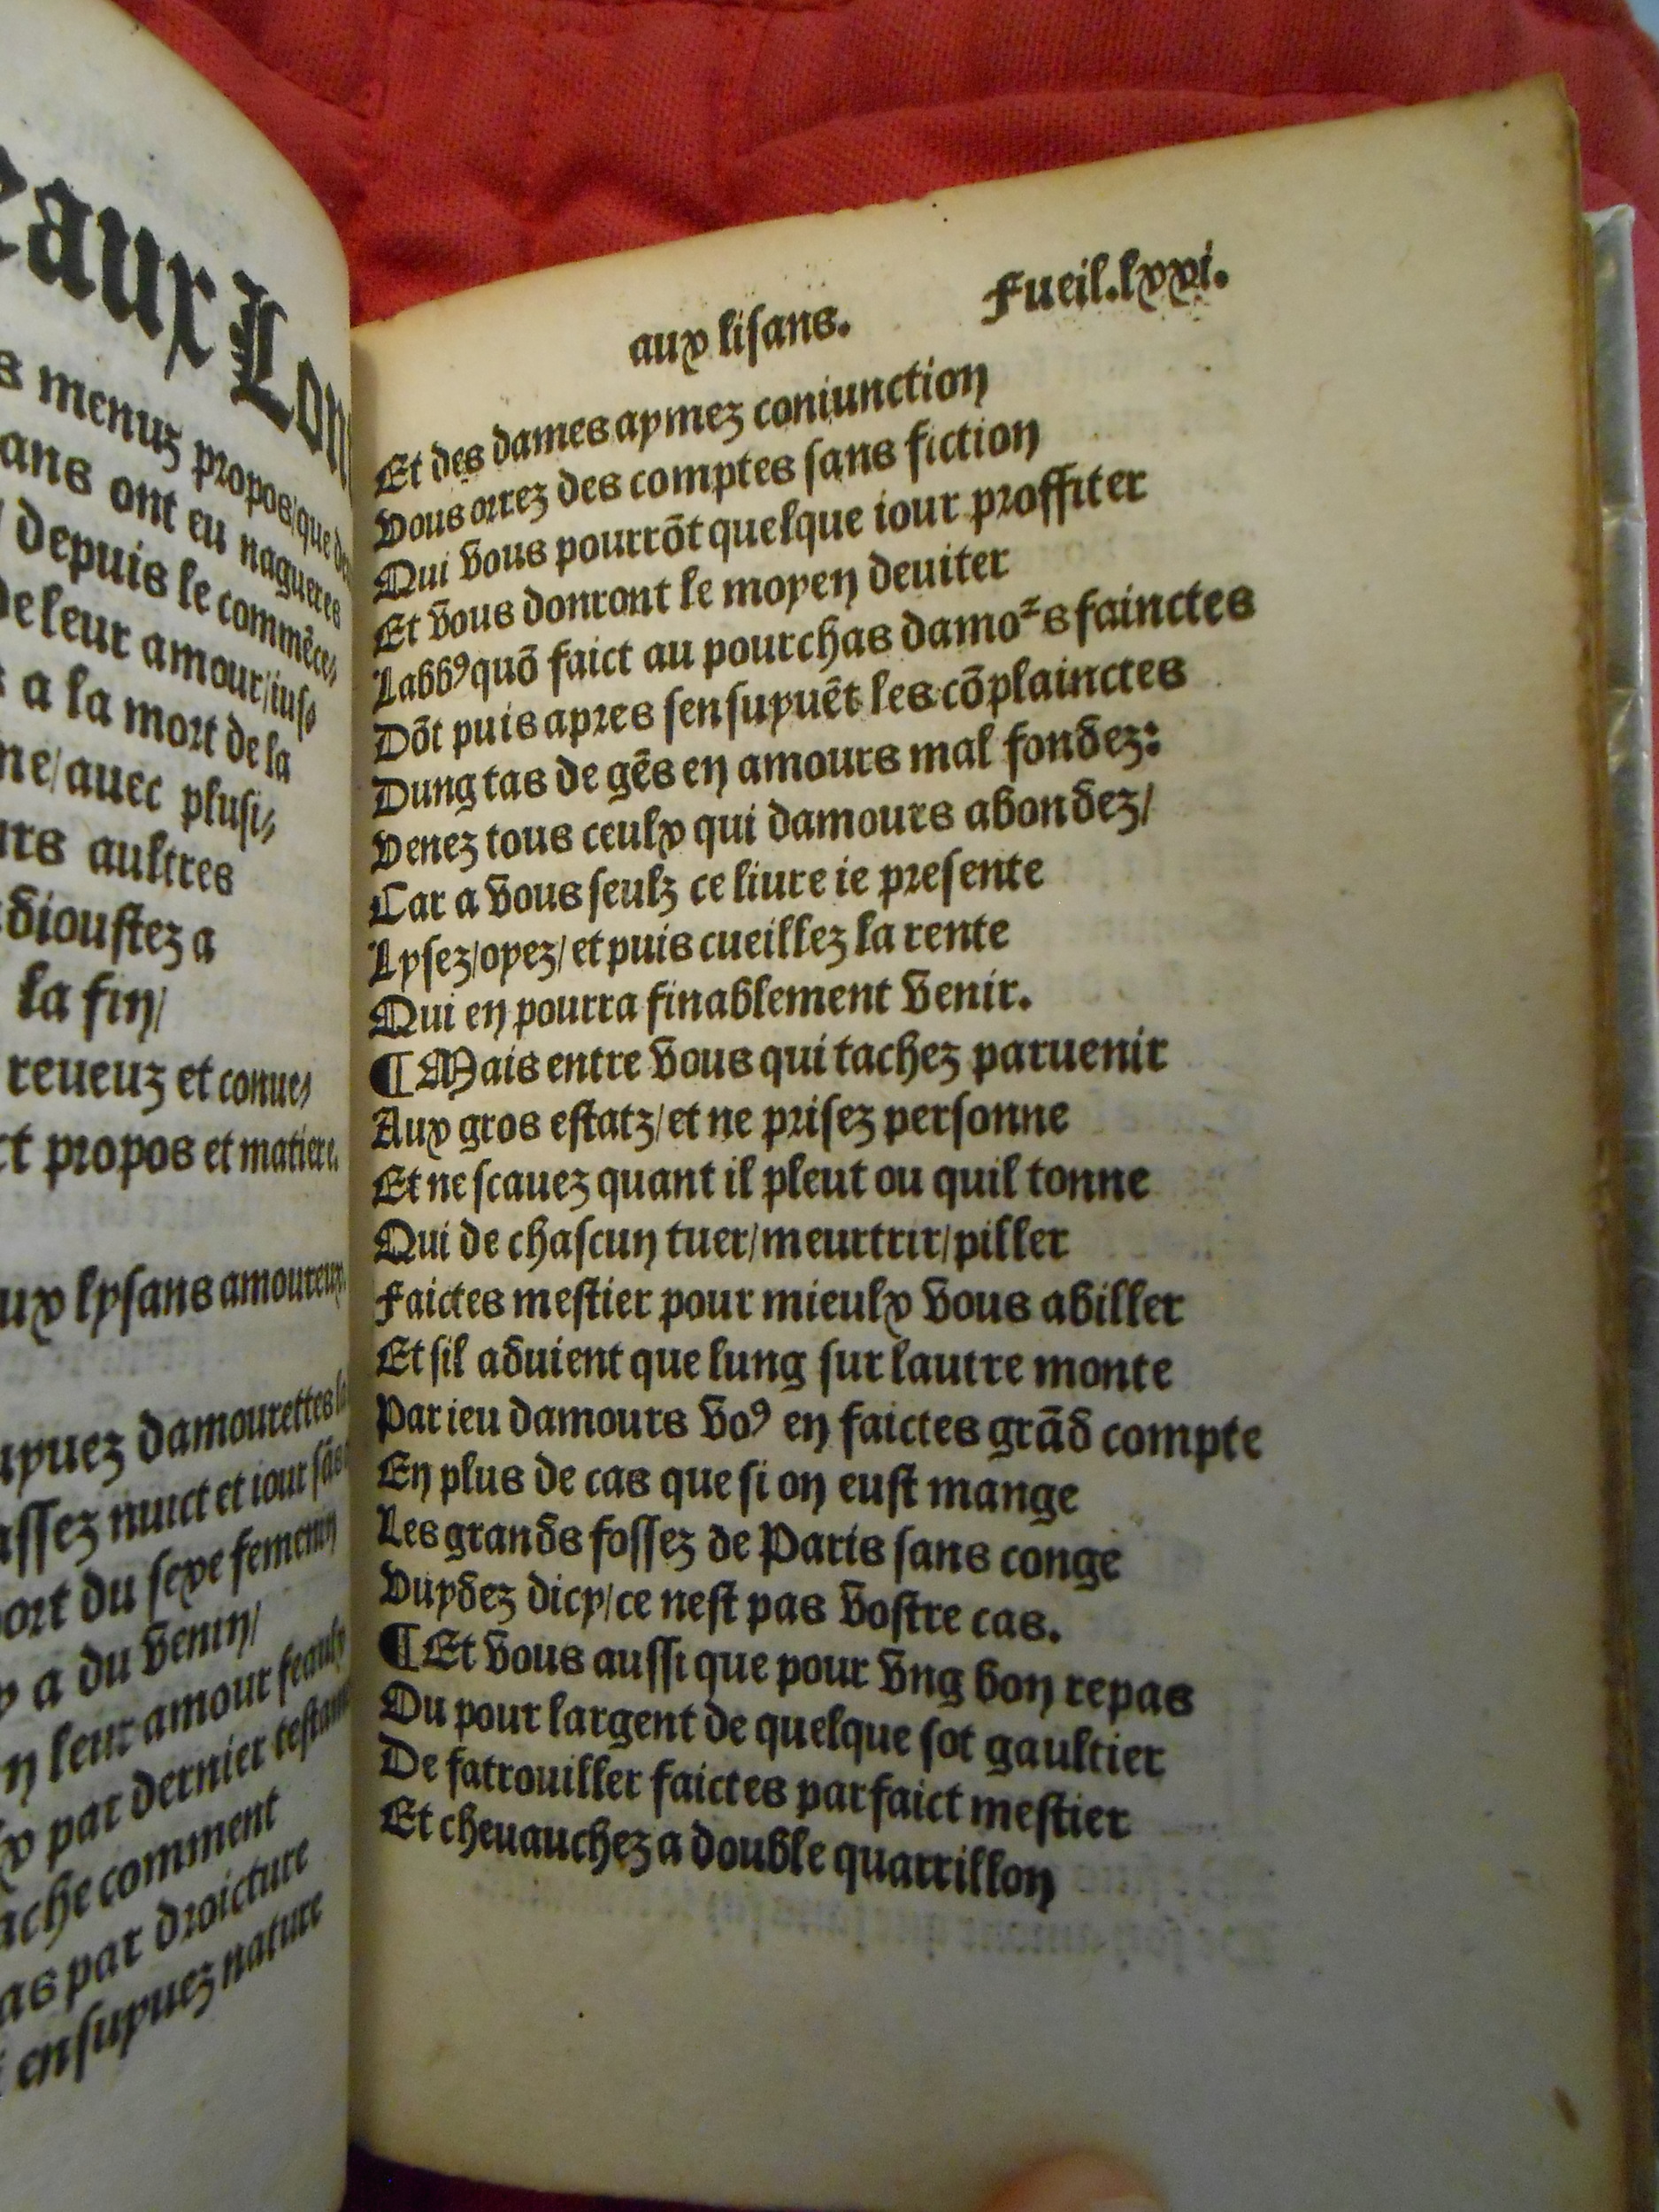 eaux Lon
s menuz propos/que de
ans ont eu nagueres
depuis le commẽce⸗
de leur amour/iusq
a la mort de la
ne/auec plusi⸗
urs aultres
adioustez a
la fin/
reueuz et conue⸗
ct propos et matiere.
ux lysans amoureux
uyuez damourettes la
assez nuict et iour sãs
port du sexe femenin
y a du venin/
n leur amour feaulx
lx par dernier testam
ache comment
as par droicture
ensuyuez nature
aux lisans. Fueil.lxxi.
Et des dames aymez coniunction
Vous orrez des comptes sans fiction
Qui vous pourrõt quelque iour proffiter
Et vous donront le moyen deuiter
Labbꝰ quõ faict au pourchas damoꝛs fainctes
Dõt puis apres sensuyuẽt les cõplainctes
Dung tas de gẽs en amours mal fondez:
Venez tous ceulx qui damours abondez/
Car a vous seulz ce liure ie presente
Lysez/oyez/et puis cueillez la rente
Qui en pourra finablement venir.
¶ Mais entre vous qui tachez paruenir
Aux gros estatz/et ne prisez personne
Et ne scauez quant il pleut ou quil tonne
Qui de chascun tuer/meurtrir/piller
Faictes mestier pour mieulx vous abiller
Et sil aduient que lung sur lautre monte
Par ieu damours voꝰ en faictes grãd compte
En plus de cas que si on eust mange
Les grands fossez de Paris sans conge
Vuydez dicy/ce nest pas vostre cas.
¶ Et vous aussi que pour vng bon repas
Ou pour largent de quelque sot gaultier
De fatrouiller faictes parfaict mestier
Et cheuauchez a double quarrillon